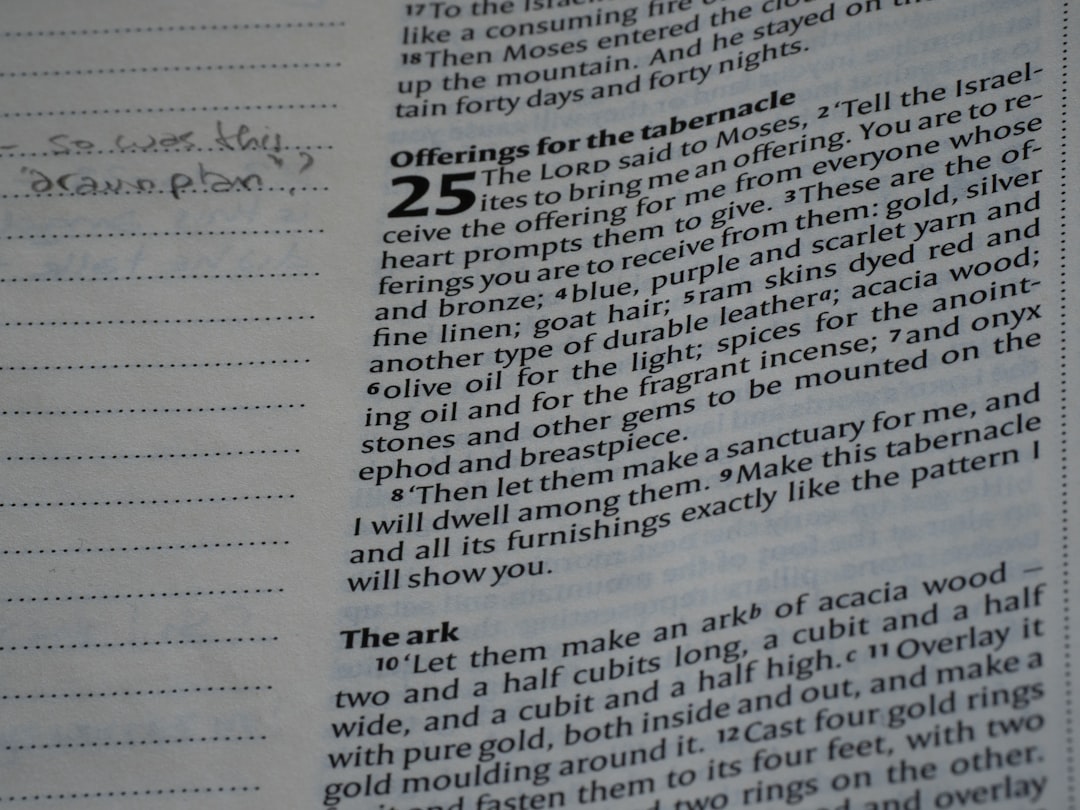 - so was this
"drawn plan"?
17 To the Israe
like a consuming fire o
18 Then Moses entered the clo
up the mountain. And he stayed on th
tain forty days and forty nights.
Offerings for the tabernacle
25 The LORD said to Moses, 2 ‘Tell the Israel-
ites to bring me an offering. You are to re-
ceive the offering for me from everyone whose
heart prompts them to give. 3 These are the of-
ferings you are to receive from them: gold, silver
and bronze; 4 blue, purple and scarlet yarn and
fine linen; goat hair; 5 ram skins dyed red and
another type of durable leather a; acacia wood;
6 olive oil for the light; spices for the anoint-
ing oil and for the fragrant incense; 7 and onyx
stones and other gems to be mounted on the
ephod and breastpiece.
8 ‘Then let them make a sanctuary for me, and
I will dwell among them. 9 Make this tabernacle
and all its furnishings exactly like the pattern I
will show you.
The ark
10 ‘Let them make an ark b of acacia wood –
two and a half cubits long, a cubit and a half
wide, and a cubit and a half high. c 11 Overlay it
with pure gold, both inside and out, and make a
gold moulding around it. 12 Cast four gold rings
and fasten them to its four feet, with two
two rings on the other.
and overlay